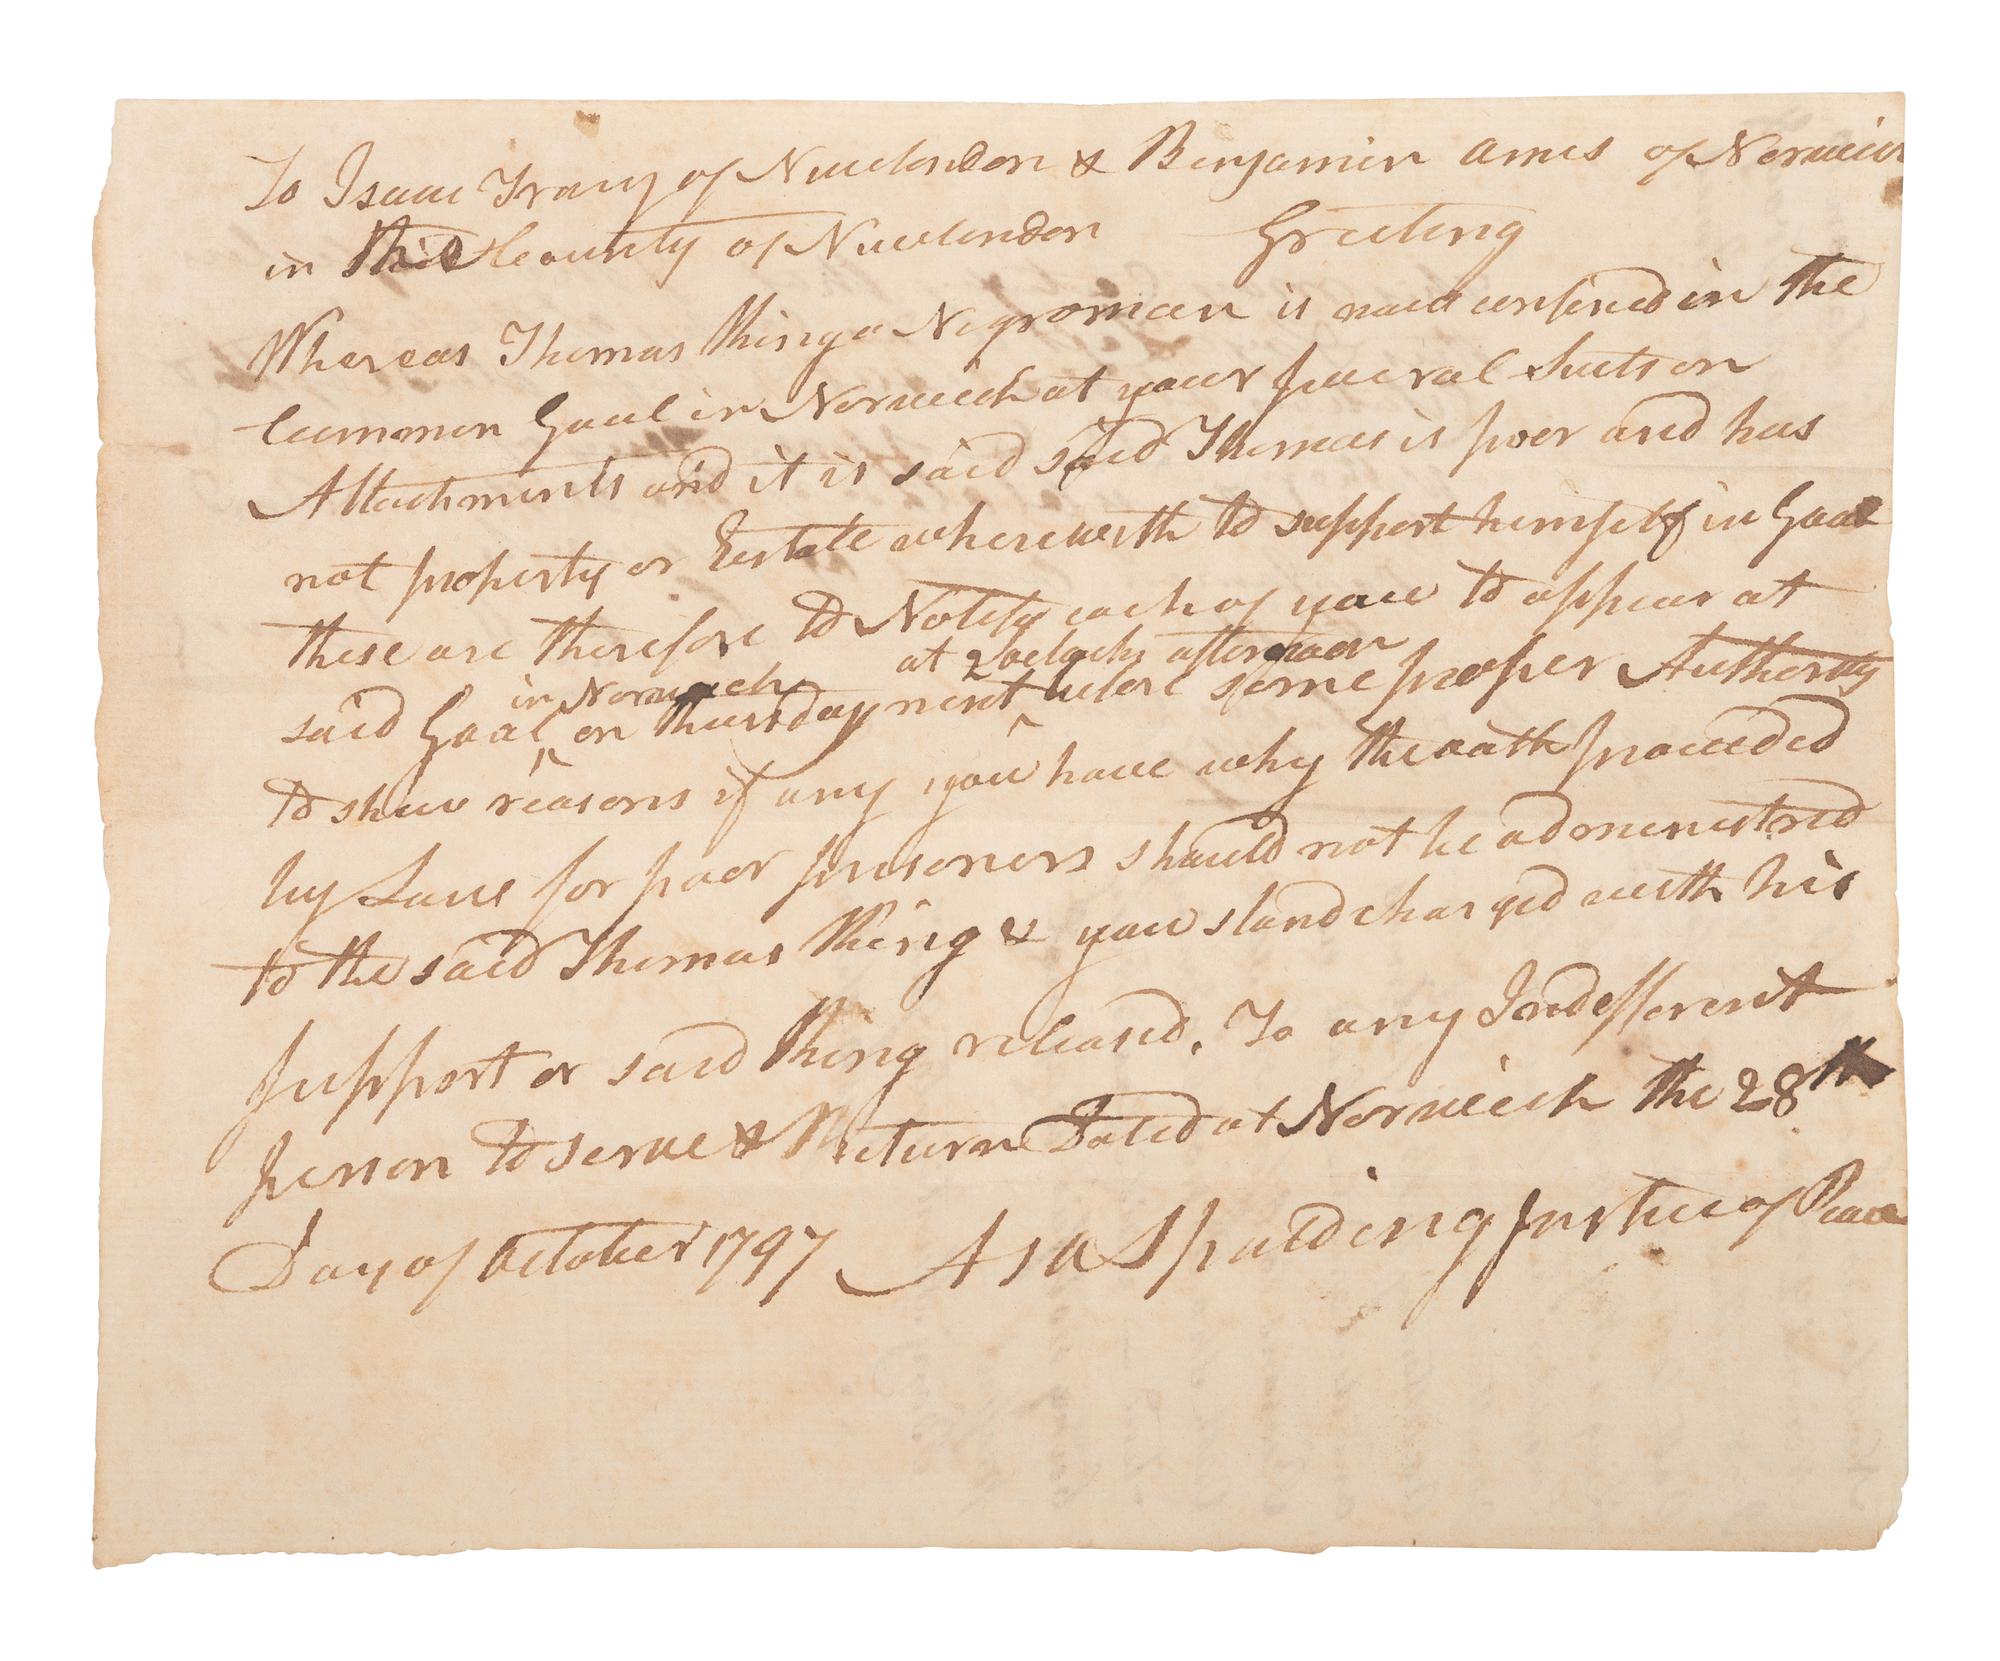 To Isaac Tracy of Newlondon & Benjamin Ames of Norwich
in the County of Newlondon Greeting
Whereas Thomas Thing a Negroman is now confined in the
Common Goal in Norwich at your several Suits on
Attachments and it is said said Thomas is poor and has
not property or Estate wherewith to support himself in Goal
these are therefore to Notify each of you to appear at
in Norwich at 2 oclock afternoon
said Goal ^ on thursday next ^ before some proper Authority
to shew reasons if any you have why the oath provided
by Law for poor prisoners should not be administred
to the said Thomas Thing & you stand charged with his
support or said Thing released. To any Indefferent
person to serve & Return Dated at Norwich the 28th
Day of October 1797 Asa Spalding Justice of Peace